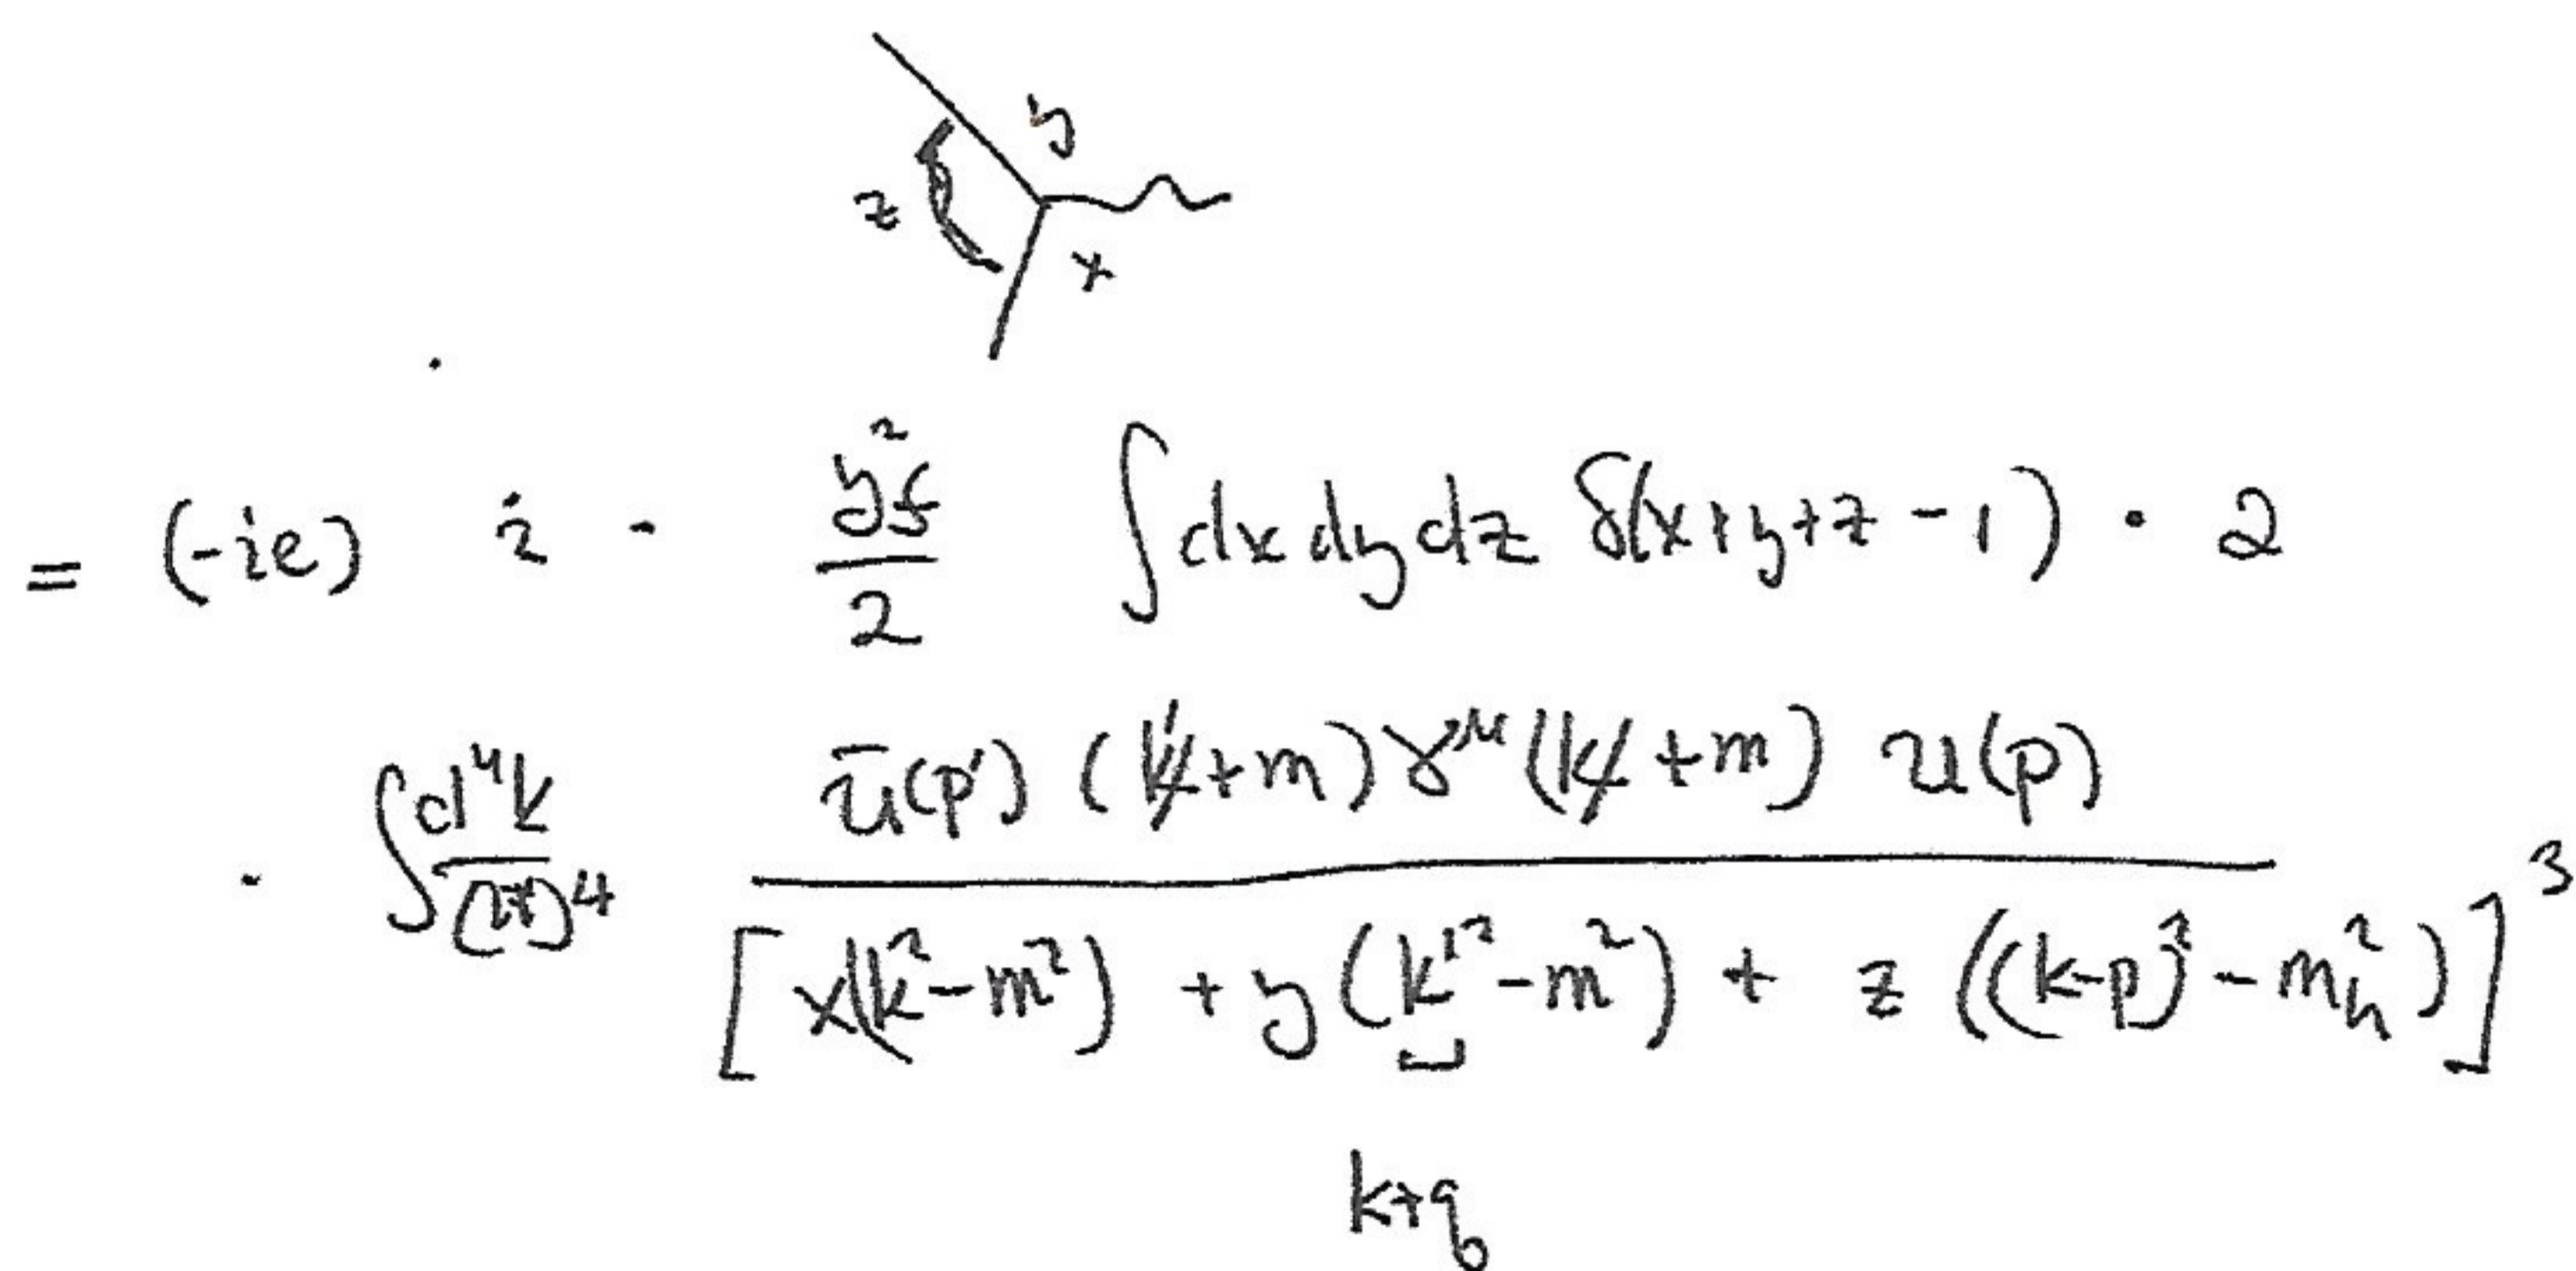 y
z
x
= (-ie) i · y_f^2/2 ∫dx dy dz δ(x+y+z-1) · 2
· ∫d^4k/(2π)^4 ū(p') (k̸'+m)γ^μ(k̸+m) u(p) / [x(k^2-m^2) + y(k'^2-m^2) + z((k-p)^2-m_h^2)]^3
k+q